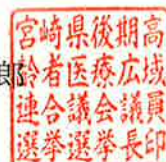 郎
宮崎県後期高
齢者医療広域
連合議会議員
選挙選挙長印